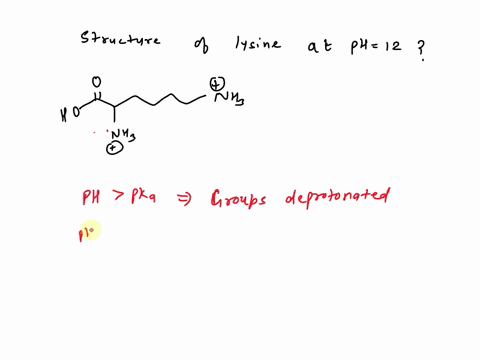 Structure of lysine at pH = 12 ?
O
⊕
NH3
HO
NH3
⊕
PH > PKa ⇒ Groups deprotonated
pk